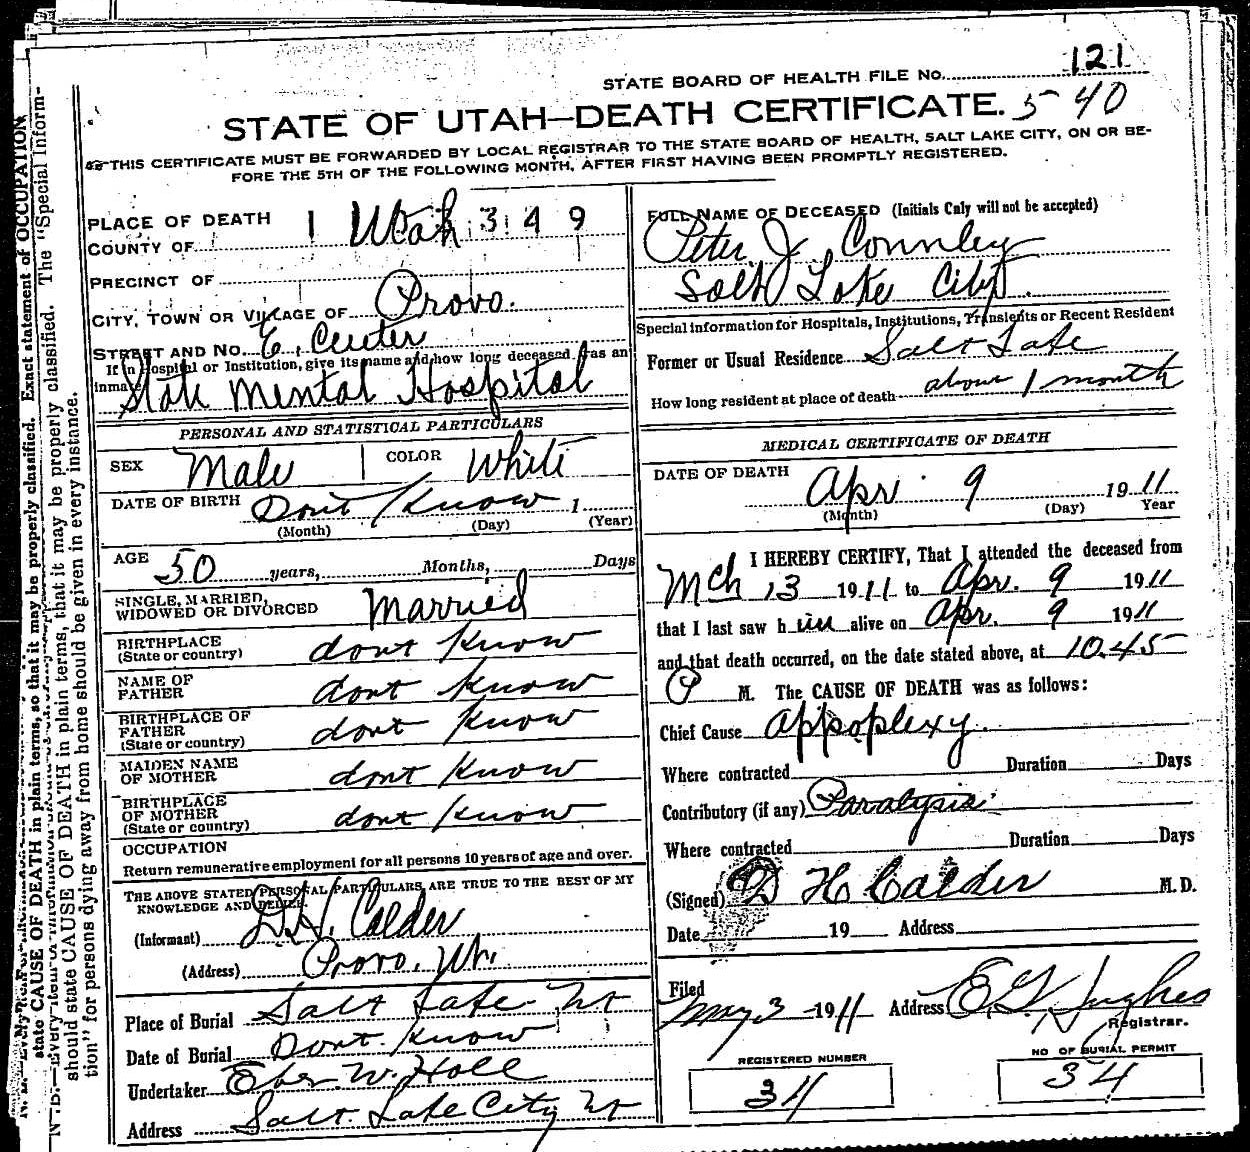 121
STATE BOARD OF HEALTH FILE No.
STATE OF UTAH—DEATH CERTIFICATE. 5 40
THIS CERTIFICATE MUST BE FORWARDED BY LOCAL REGISTRAR TO THE STATE BOARD OF HEALTH, SALT LAKE CITY, ON OR BE-
FORE THE 5TH OF THE FOLLOWING MONTH, AFTER FIRST HAVING BEEN PROMPTLY REGISTERED.
PLACE OF DEATH 1 Utah 3 4 9
COUNTY OF
PRECINCT OF
CITY, TOWN OR VILLAGE OF Provo.
STREET AND No. E. Center
If in Hospital or Institution, give its name and how long deceased was an
inmate State Mental Hospital
PERSONAL AND STATISTICAL PARTICULARS
SEX Male COLOR White
DATE OF BIRTH Dont Know 1
(Month) (Day) (Year)
AGE 50 years, Months, Days
SINGLE, MARRIED,
WIDOWED OR DIVORCED Married
BIRTHPLACE
(State or country) dont Know
NAME OF
FATHER dont Know
BIRTHPLACE OF
FATHER
(State or country) dont Know
MAIDEN NAME
OF MOTHER dont Know
BIRTHPLACE
OF MOTHER
(State or country) dont Know
OCCUPATION
Return remunerative employment for all persons 10 years of age and over.
THE ABOVE STATED PERSONAL PARTICULARS ARE TRUE TO THE BEST OF MY
KNOWLEDGE AND BELIEF.
(Informant) D.H. Calder
(Address) Provo, Ut.
Place of Burial Salt Lake Ut
Date of Burial Dont Know
Undertaker Eber W. Hall
Address Salt Lake City Ut
FULL NAME OF DECEASED (Initials Only will not be accepted)
Peter J Connley
Salt Lake City
Special information for Hospitals, Institutions, Transients or Recent Resident
Former or Usual Residence Salt Lake
How long resident at place of death about 1 month
MEDICAL CERTIFICATE OF DEATH
DATE OF DEATH Apr 9 1911
(Month) (Day) Year
I HEREBY CERTIFY, That I attended the deceased from
Mch 13 1911 to Apr. 9 1911
that I last saw h im alive on Apr. 9 1911
and that death occurred, on the date stated above, at 10.45
P M. The CAUSE OF DEATH was as follows:
Chief Cause Appoplexy.
Where contracted Duration Days
Contributory (if any) Paralysis
Where contracted Duration Days
(Signed) D H Calder M.D.
Date 19 Address
Filed
May 3 1911 Address E G Hughes
Registrar.
REGISTERED NUMBER
34
NO OF BURIAL PERMIT
34
state CAUSE OF DEATH in plain terms, so that it may be properly classified. Exact statement of OCCUPATION
should state CAUSE OF DEATH in plain terms, that it may be properly classified. The "Special Inform-
tion" for persons dying away from home should be given in every instance.